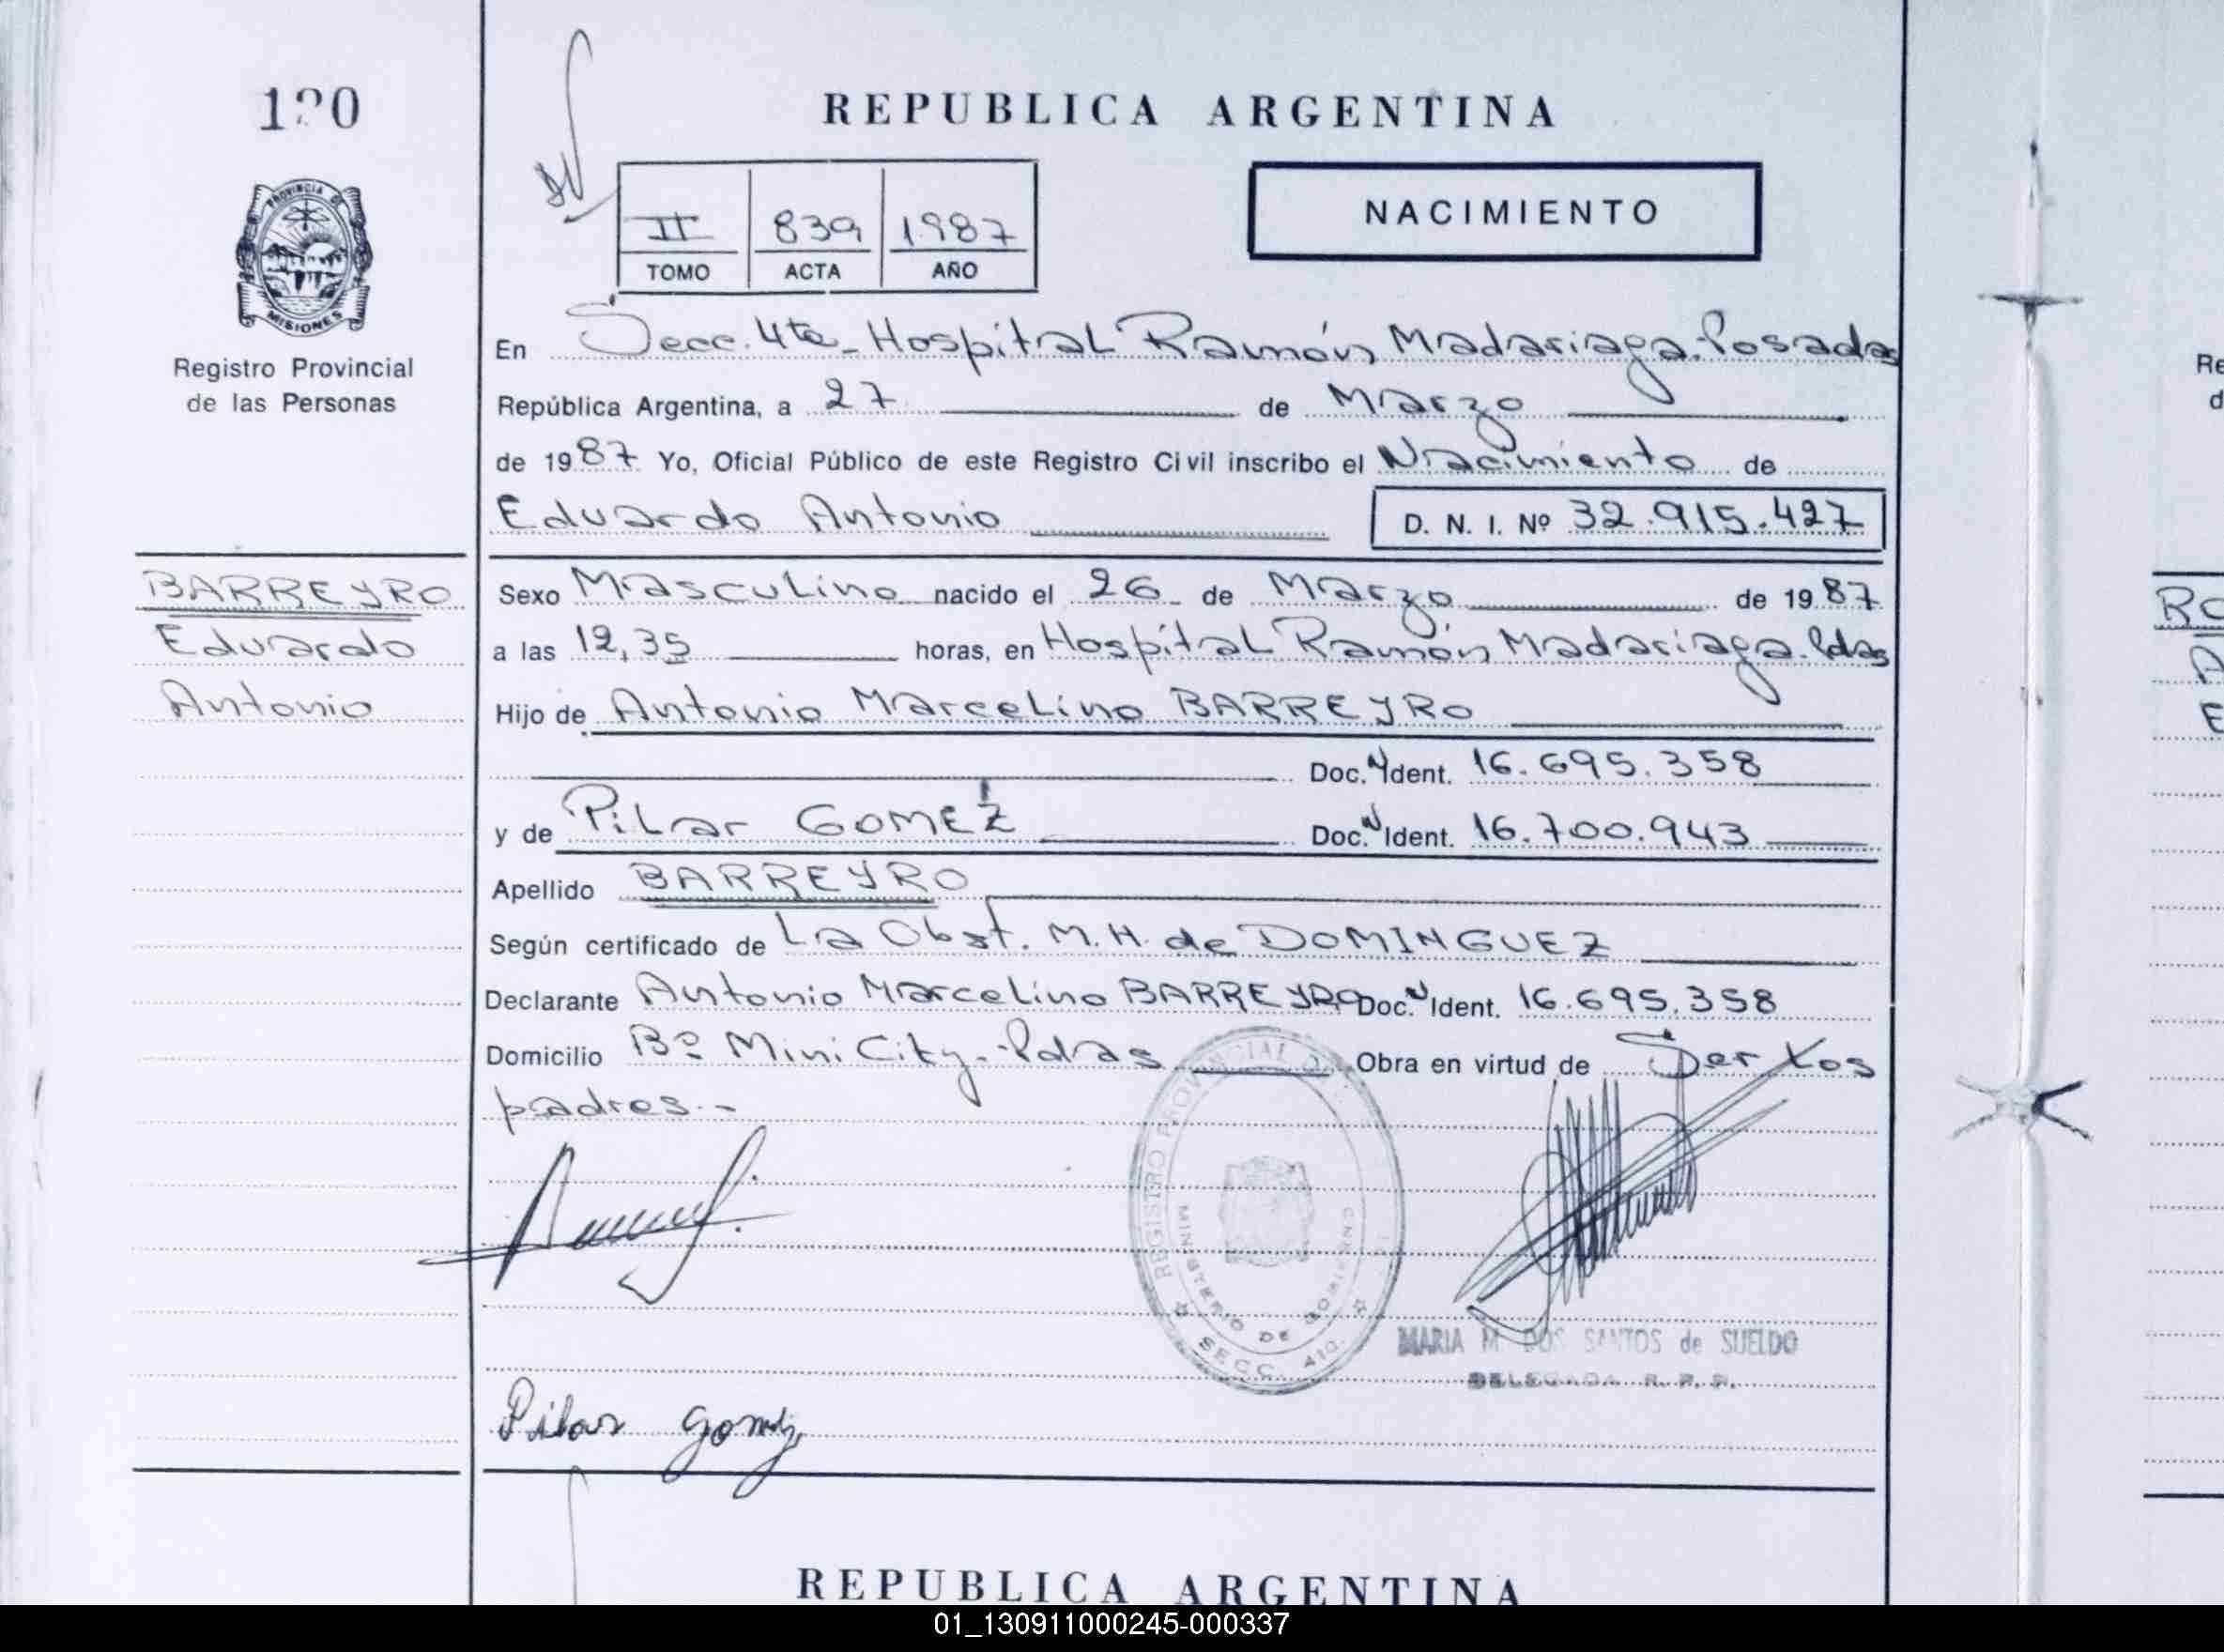 120
REPUBLICA ARGENTINA
NACIMIENTO
II 839 1987
TOMO ACTA AÑO
PROVINCIA DE
MISIONES
Registro Provincial
de las Personas
En Secc. 4ta - Hospital Ramón Madariaga - Posadas
República Argentina, a 27 de Marzo
de 1987 Yo, Oficial Público de este Registro Civil inscribo el Nacimiento de
Eduardo Antonio D. N. I. Nº 32.915.427
BARREYRO
Eduardo
Antonio
Sexo Masculino nacido el 26 de Marzo de 1987
a las 12,35 horas, en Hospital Ramón Madariaga. Pdas
Hijo de Antonio Marcelino BARREYRO
Doc. Ident. 16.695.358
y de Pilar GOMEZ Doc. Ident. 16.700.943
Apellido BARREYRO
Según certificado de La Obst. M.H. de DOMINGUEZ
Declarante Antonio Marcelino BARREYRO Doc. Ident. 16.695.358
Domicilio Bº Mini City - Pdas Obra en virtud de Ser los
padres.-
REGISTRO PROVINCIAL DE
MINISTERIO DE GOBIERNO
SECC. 4ta.
MARIA M. DOS SANTOS de SUELDO
DELEGADA R. P. P.
Pilar Gomez
REPUBLICA ARGENTINA
01_130911000245-000337